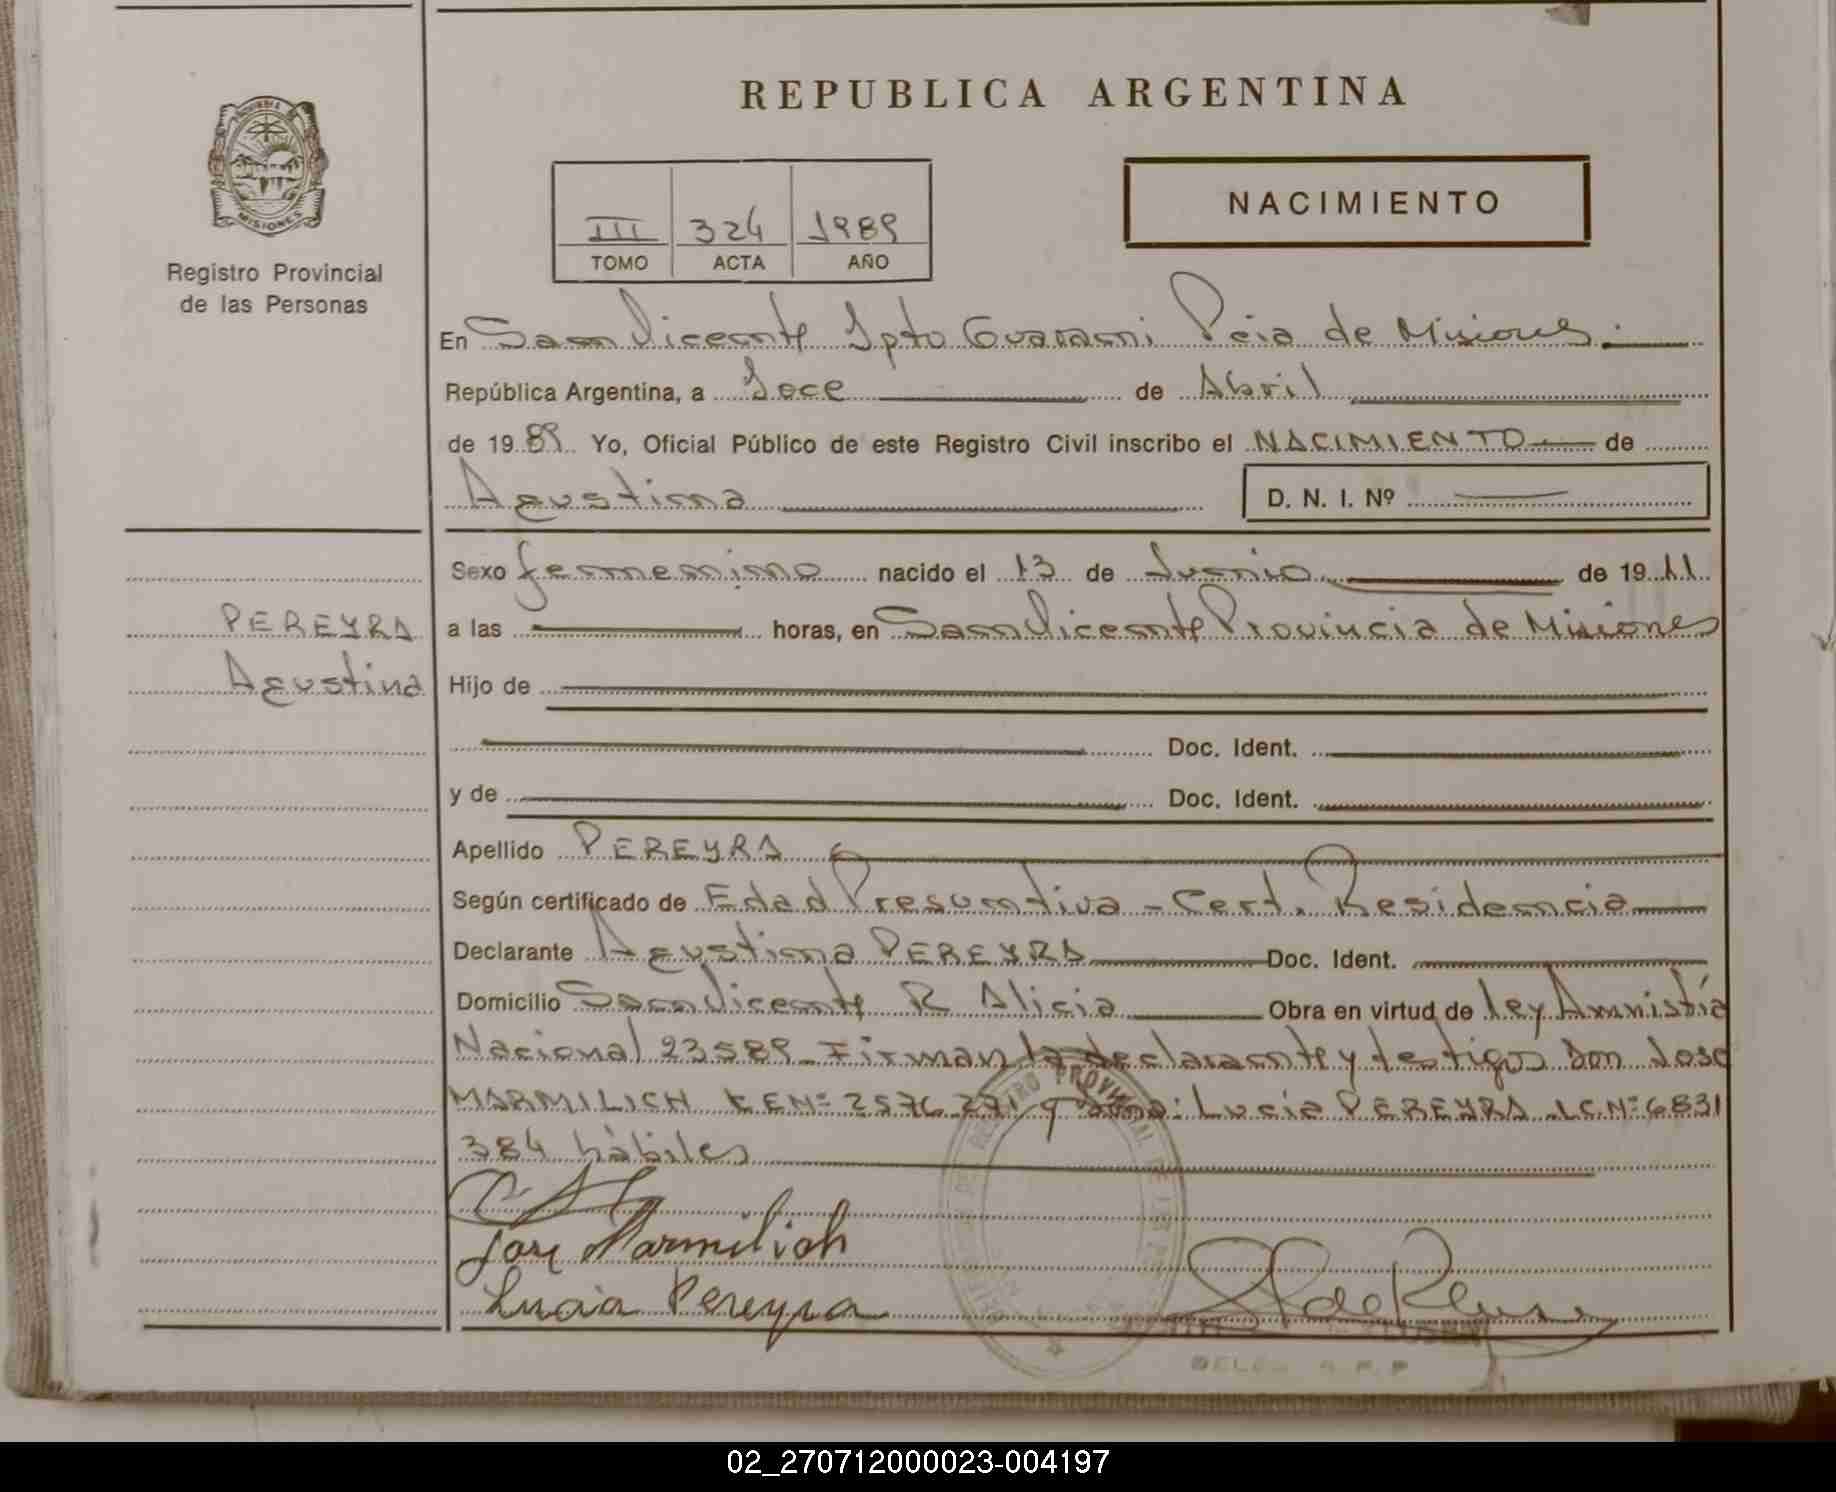 REPUBLICA ARGENTINA
MISIONES
Registro Provincial
de las Personas
III 324 1989
TOMO ACTA AÑO
NACIMIENTO
En San Vicente Dpto Guarani Pcia de Misiones.
República Argentina, a Doce de Abril
de 1989 Yo, Oficial Público de este Registro Civil inscribo el NACIMIENTO de
Agustina D. N. I. Nº
Sexo femenino nacido el 13 de Junio de 1911
PEREYRA
a las horas, en San Vicente Provincia de Misiones
Agustina
Hijo de
Doc. Ident.
y de Doc. Ident.
Apellido PEREYRA
Según certificado de Edad Presuntiva - Cert. Residencia
Declarante Agustina PEREYRA Doc. Ident.
Domicilio San Vicente R Alicia Obra en virtud de ley Amnistía
Nacional 23589 Firman la declarante y testigos Don Jose
MARMILICH Nº 2576 271 y Doña: Lucia PEREYRA LC Nº 6831
384 hábiles
José Marmilich
Lucia Pereyra
02_270712000023-004197